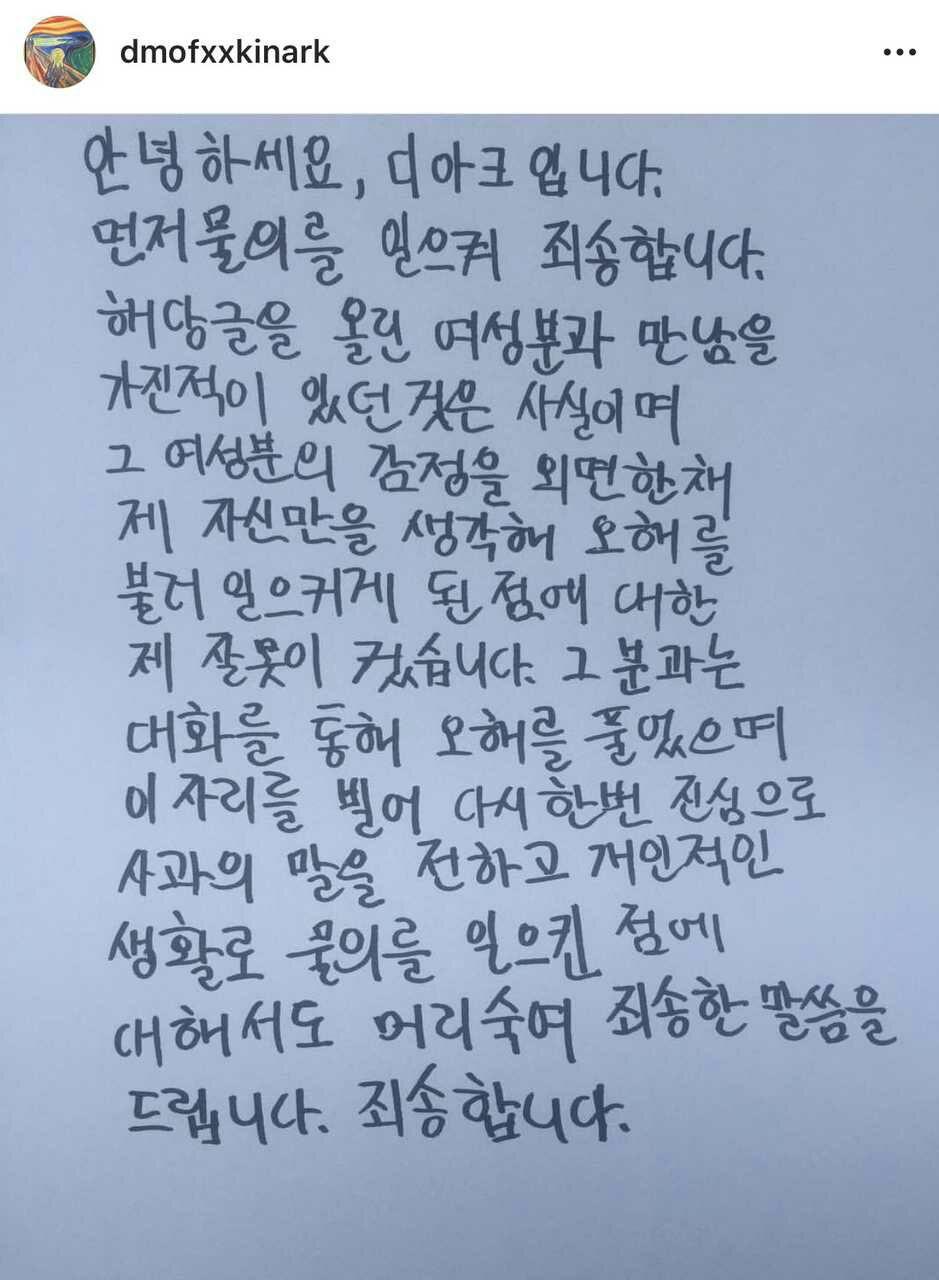 dmofxxkinark
안녕하세요, 디아크입니다.
먼저 물의를 일으켜 죄송합니다.
해당글을 올린 여성분과 만남을
가진적이 있던것은 사실이며
그 여성분의 감정을 외면한채
제 자신만을 생각해 오해를
불러 일으키게 된 점에 대한
제 잘못이 컸습니다. 그 분과는
대화를 통해 오해를 풀었으며
이 자리를 빌어 다시 한번 진심으로
사과의 말을 전하고 개인적인
생활로 물의를 일으킨 점에
대해서도 머리숙여 죄송한 말씀을
드립니다. 죄송합니다.